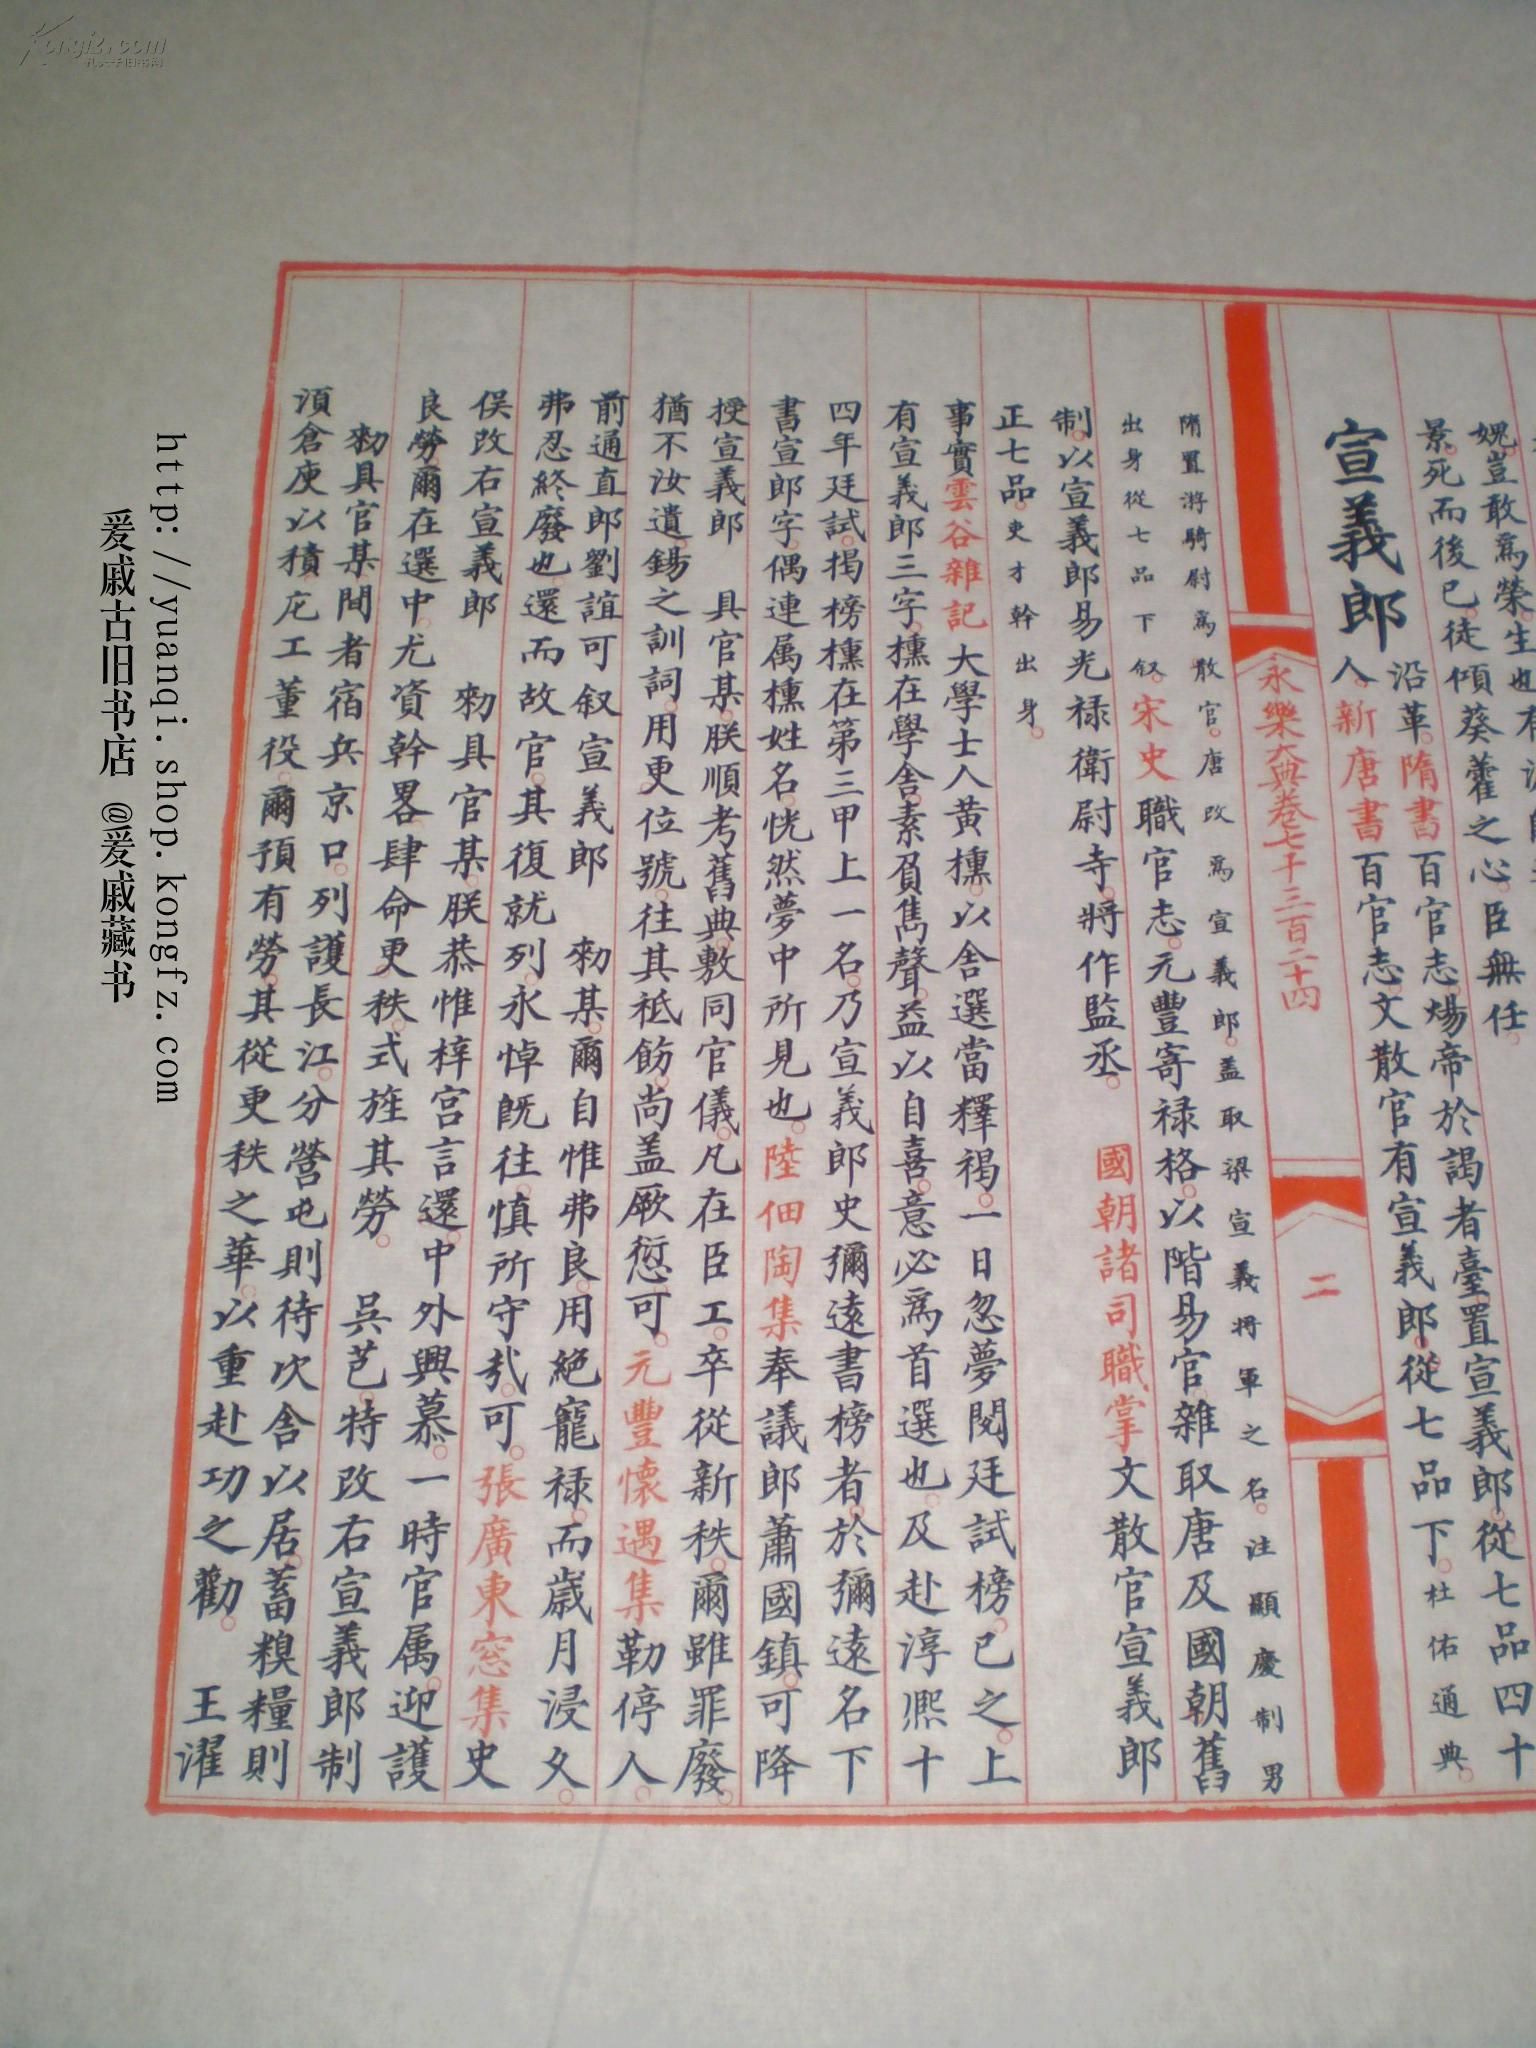 媿豈敢爲榮生也有
景死而後已徒傾葵藿之心臣無任
宣義郎
沿革隋書百官志煬帝於謁者臺置宣義郎從七品四十
人新唐書百官志文散官有宣義郎從七品下杜佑通典
永樂大典卷七千三百二十四
二
隋置游騎尉爲散官唐改爲宣義郎盖取梁宣義将軍之名注顯慶制男
出身從七品下叙宋史職官志元豐寄禄格以階易官雜取唐及國朝舊
制以宣義郎易光禄衛尉寺將作監丞 國朝諸司職掌文散官宣義郎
正七品吏才幹出身
事實雲谷雜記大學士入黄櫄以舎選當釋褐一日忽夢閱廷試榜已之上
有宣義郎三字櫄在學舎素負雋聲益以自喜意必爲首選也及赴淳熈十
四年廷試揭榜櫄在第三甲上一名乃宣義郎史彌遠書榜者於彌遠名下
書宣郎字偶連属櫄姓名恍然夢中所見也陸佃陶集奉議郎蕭國鎮可降
授宣義郎 具官某朕順考舊典敷同官儀凡在臣工卒從新秩爾雖罪廢
猶不汝遺錫之訓詞用更位號往其祗飭尚盖厥愆可元豐懷遇集勒停人
前通直郎劉誼可叙宣義郎 勑某爾自惟弗良用絶寵禄而歳月浸久
弗忍終廢也還而故官其復就列永悼既往慎所守㢤可張廣東窓集史
俣改右宣義郎 勑具官某朕恭惟梓宫言還中外興慕一時官属迎護
良勞爾在選中尤資幹畧肆命更秩式旌其勞 吳芑特改右宣義郎制
勑具官某間者宿兵京口列護長江分營屯則待次舎以居蓄糗糧則
湏倉庾以積庀工董役爾預有勞其從更秩之華以重赴功之勸 王濯
http://yuanqi.shop.kongfz.com
爰戚古旧书店 @爰戚藏书
Kongfz.com
孔夫子旧书网